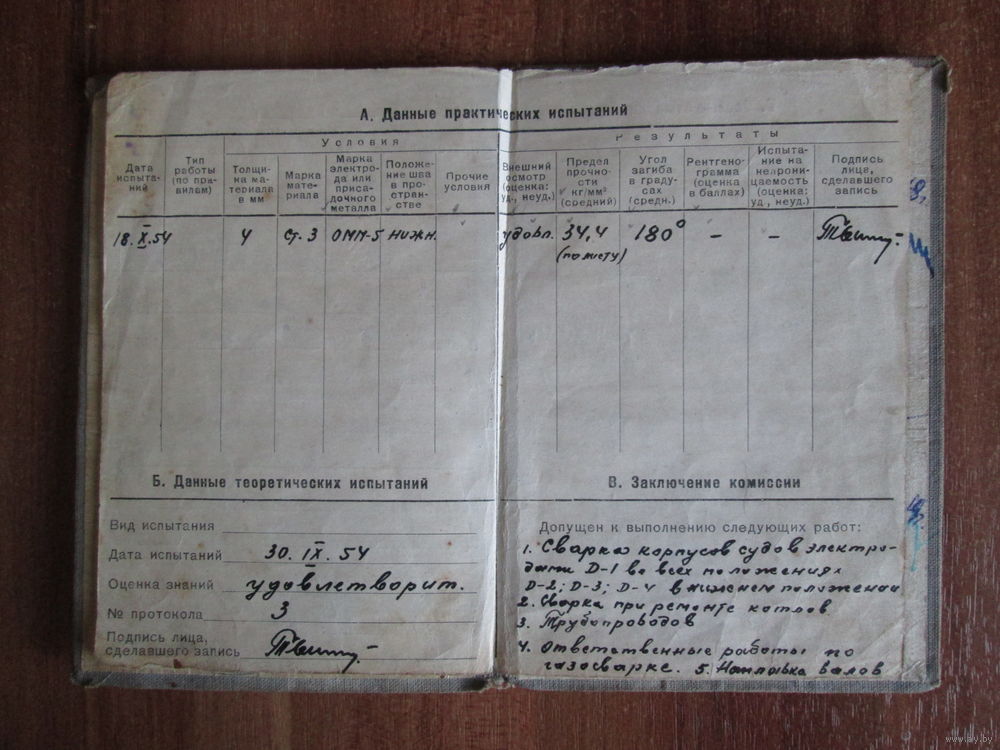 А. Данные практических испытаний
Условия
Результаты
Дата
испыта-
ний
Тип
работы
(по пра-
вилам)
Толщи-
на ма-
териала
в мм
Марка
мате-
риала
Марка
электро-
да или
приса-
дочного
металла
Положе-
ние шва
в про-
стран-
стве
Прочие
условия
Внешний
осмотр
(оценка:
уд., неуд.)
Предел
прочно-
сти
кг/мм²
(средний)
Угол
загиба
в граду-
сах
(средн.)
Рентгено-
грамма
(оценка
в баллах)
Испыта-
ние на
непрони-
цаемость
(оценка:
уд., неуд.)
Подпись
лица,
сделавшего
запись
18.IX.54 4 Ст.3 ОММ-5 нижн. удовл. 34,4 180° – –
(по листу)
Б. Данные теоретических испытаний
Вид испытания
Дата испытаний 30.IX.54
Оценка знаний удовлетворит.
№ протокола 3
Подпись лица,
сделавшего запись
В. Заключение комиссии
Допущен к выполнению следующих работ:
1. Сварка корпусов судов электро-
дами D-1 во всех положениях
D-2; D-3; D-4 в нижнем положении
2. Сварка при ремонте котлов
3. Трубопроводов
4. Ответственные работы по
газосварке. 5. Наплавка валов
www.ay.by